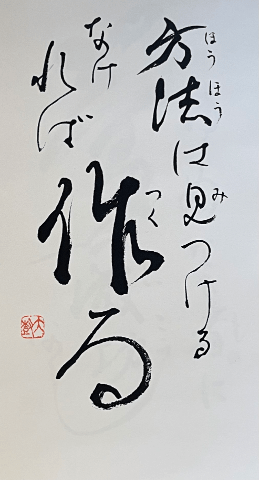 方法は見つける
ほうほう
み
なければ
作る
つく